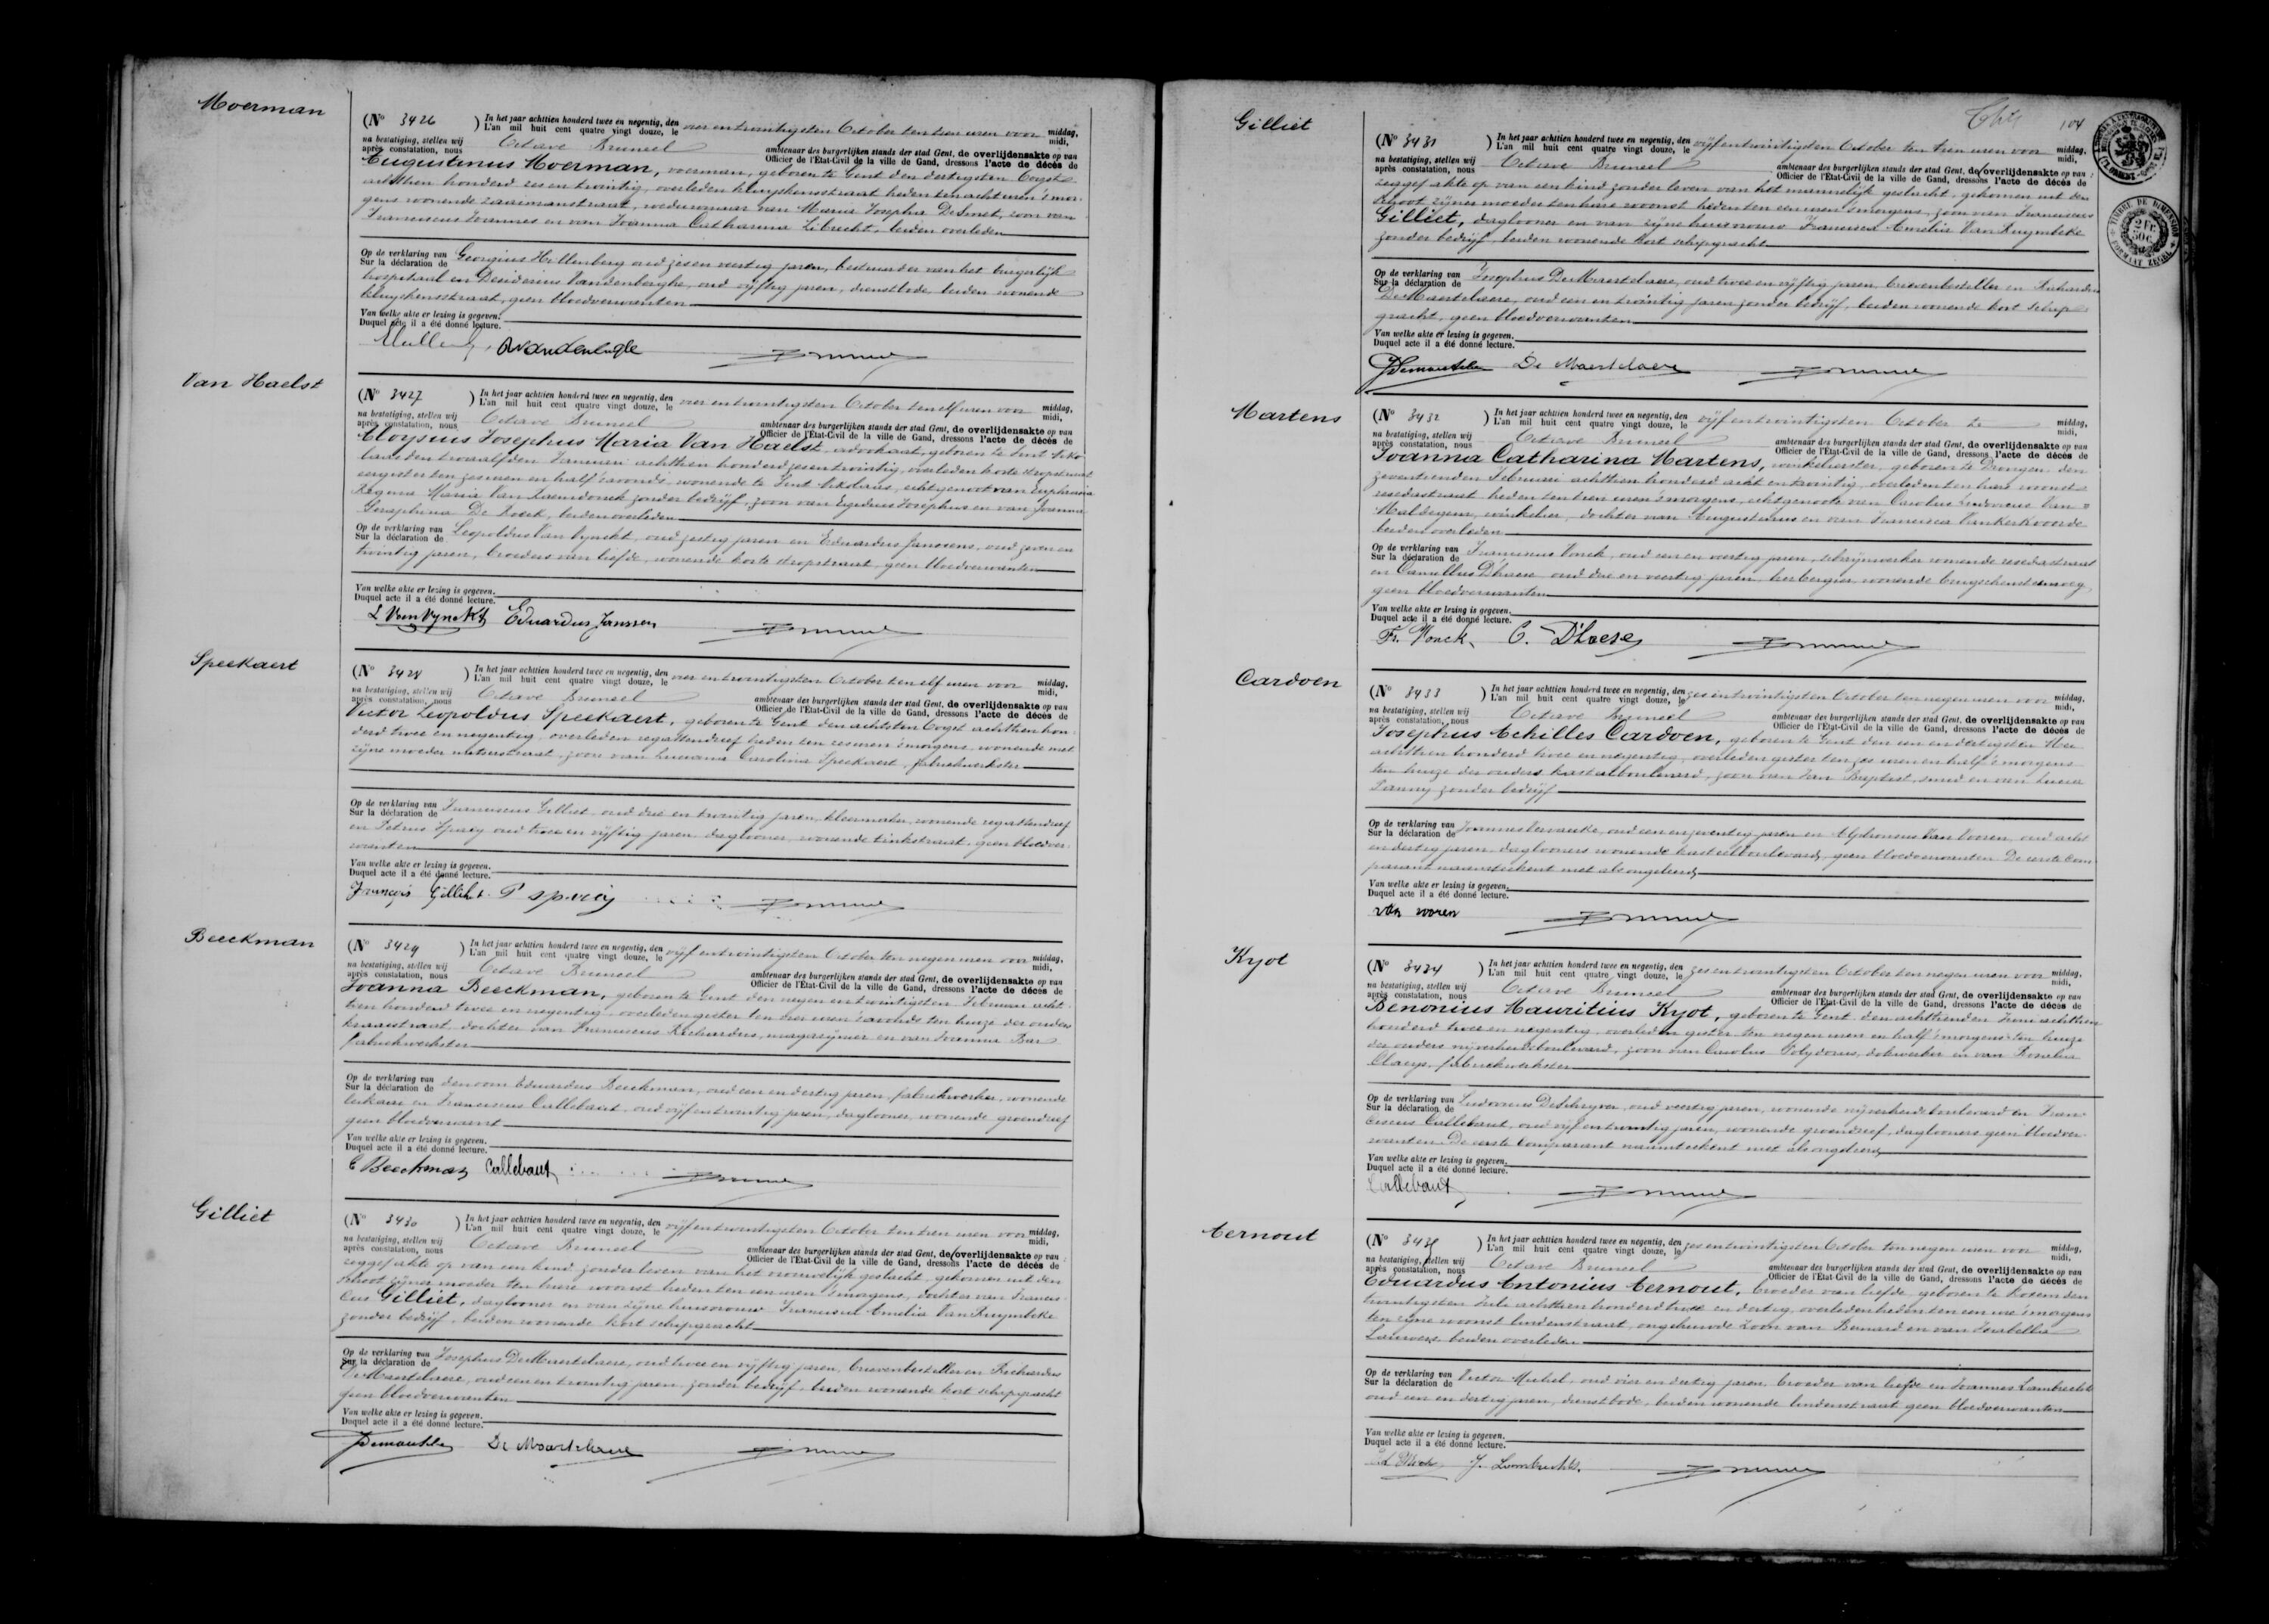 Moerman
(No 3426 ) In het jaar achttien honderd twee en negentig, den vier en twintigsten October ten tien uren voor middag,
L'an mil huit cent quatre vingt douze, le midi,
na bestatiging, stellen wij Octave Bruneel ambtenaar des burgerlijken stands der stad Gent, de overlijdensakte op van
après constatation, nous Officier de l'État-Civil de la ville de Gand, dressons l'acte de décès de
Augustinus Moerman, voerman, geboren te Gent den dertigsten Oogst
achttien honderd zes en twintig, overleden kluyskensstraat heden ten acht uren 's mor-
gens wonende zaaimanstraat, weduwnaar van Maria Josepha De Smet, zoon van
Franciscus Joannes en van Joanna Catharina Librecht, beiden overleden
Op de verklaring van Georgius Hullenberg oud zes en veertig jaren, bestuurder van het burgerlijk
Sur la déclaration de
hospitaal en Desiderius Vandenberghe, oud vijftig jaren, dienstbode beiden wonende
kluyskensstraat, geen bloedverwanten
Van welke akte er lezing is gegeven.
Duquel acte il a été donné lecture.
Van Haelst
(No 3427 ) In het jaar achttien honderd twee en negentig, den vier en twintigsten October ten elf uren voor middag,
L'an mil huit cent quatre vingt douze, le midi,
na bestatiging, stellen wij Octave Bruneel ambtenaar des burgerlijken stands der stad Gent, de overlijdensakte op van
après constatation, nous Officier de l'État-Civil de la ville de Gand, dressons l'acte de décès de
Aloysius Josephus Maria Van Haelst, advokaat, geboren te Sint Niko-
laas den twaalfden Januari achttien honderd zes en twintig, overleden korte dropstraat
eergister ten zes uren en half 's avonds, wonende te Sint Nikolaas, echtgenoot van Euphrasia
Regina Maria Van Raemdonck zonder bedrijf, zoon van Egidius Josephus en van Joanna
Seraphina De Kock, beiden overleden
Op de verklaring van Leopoldus Van Vynckt, oud zestig jaren en Eduardus Janssens, oud zeven en
Sur la déclaration de
twintig jaren, broeders van liefde, wonende korte dropstraat, geen bloedverwanten
Van welke akte er lezing is gegeven.
Duquel acte il a été donné lecture.
L Van Vynckt Eduardus Janssen
Speekaert
(No 3428 ) In het jaar achttien honderd twee en negentig, den vier en twintigsten October ten elf uren voor middag,
L'an mil huit cent quatre vingt douze, le midi,
na bestatiging, stellen wij Octave Bruneel ambtenaar des burgerlijken stands der stad Gent, de overlijdensakte op van
après constatation, nous Officier de l'État-Civil de la ville de Gand, dressons l'acte de décès de
Victor Leopoldus Speekaert, geboren te Gent den achtsten Oogst achttien hon-
derd twee en negentig, overleden regattendreef heden ten uren 's morgens, wonende met
zijne moeder straat, zoon van Carolina Speekaert, fabriekwerkster
Op de verklaring van Franciscus Gilliet, oud drie en twintig jaren, kleermaker, wonende regattendreef
Sur la déclaration de
en Petrus Sparcy oud twee en vijftig jaren daglooner, wonende tinkstraat, geen bloedver-
wanten
Van welke akte er lezing is gegeven.
Duquel acte il a été donné lecture.
François Gilliet
Beeckman
(No 3429 ) In het jaar achttien honderd twee en negentig, den vijf en twintigsten October ten negen uren voor middag,
L'an mil huit cent quatre vingt douze, le midi,
na bestatiging, stellen wij Octave Bruneel ambtenaar des burgerlijken stands der stad Gent, de overlijdensakte op van
après constatation, nous Officier de l'État-Civil de la ville de Gand, dressons l'acte de décès de
Joanna Beeckman, geboren te Gent den negen en twintigsten Februari acht-
tien honderd twee en negentig, overleden gister ten vier uren 's avonds ten huize der ouders
kraanstraat, dochter van Franciscus Richardus, magazijnier en van Joanna Bar
fabriekwerkster
Op de verklaring van den oom Eduardus Beeckman, oud een en dertig jaren, fabriekwerker, wonende
Sur la déclaration de
leikaai en Franciscus Callebaut, oud vijf en twintig jaren, daglooner, wonende groendreef
geen bloedverwant
Van welke akte er lezing is gegeven.
Duquel acte il a été donné lecture.
E Beeckman Callebaut
Gilliet
(No 3430 ) In het jaar achttien honderd twee en negentig, den vijf en twintigsten October ten tien uren voor middag,
L'an mil huit cent quatre vingt douze, le midi,
na bestatiging, stellen wij Octave Bruneel ambtenaar des burgerlijken stands der stad Gent, de overlijdensakte op van :
après constatation, nous Officier de l'État-Civil de la ville de Gand, dressons l'acte de décès de
zeggef akte op van een kind zonder leven van het vrouwelijk geslacht, gekomen uit den
schoot zijner moeder ten hare woonst heden ten een uren 's morgens, dochter van Francis-
cus Gilliet, daglooner en van zijne huisvrouw Francisca Amelia Van Ruymbeke
zonder bedrijf, beiden wonende kort schipgracht
Op de verklaring van Josephus De Maertelaere, oud twee en vijftig jaren, brievenbesteller en Richardus
Sur la déclaration de
De Maertelaere, oud een en twintig jaren, zonder bedrijf, beiden wonende kort schipgracht
geen bloedverwanten
Van welke akte er lezing is gegeven.
Duquel acte il a été donné lecture.
De Maertelaere
104
TIMBRE DE DIMENSION
2 Fr. 50 c.
FORMAAT ZEGEL
Gilliet
(No 3431 ) In het jaar achttien honderd twee en negentig, den vijf en twintigsten October ten tien uren voor middag,
L'an mil huit cent quatre vingt douze, le midi,
na bestatiging, stellen wij Octave Bruneel ambtenaar des burgerlijken stands der stad Gent, de overlijdensakte op van :
après constatation, nous Officier de l'État-Civil de la ville de Gand, dressons l'acte de décès de
zeggef akte op van een kind zonder leven van het mannelijk geslacht, gekomen uit den
schoot zijner moeder ten hare woonst heden ten een uren 's morgens, zoon van Franciscus
Gilliet, daglooner en van zijne huisvrouw Francisca Amelia Van Ruymbeke
zonder bedrijf, beiden wonende kort schipgracht
Op de verklaring van Josephus De Maertelaere, oud twee en vijftig jaren, brievenbesteller en Richardus
Sur la déclaration de
De Maertelaere, oud een en twintig jaren zonder bedrijf, beiden wonende kort schip-
gracht, geen bloedverwanten
Van welke akte er lezing is gegeven.
Duquel acte il a été donné lecture.
De Maertelaere
Martens
(No 3432 ) In het jaar achttien honderd twee en negentig, den vijf en twintigsten October te middag,
L'an mil huit cent quatre vingt douze, le midi,
na bestatiging, stellen wij Octave Bruneel ambtenaar des burgerlijken stands der stad Gent, de overlijdensakte op van
après constatation, nous Officier de l'État-Civil de la ville de Gand, dressons l'acte de décès de
Joanna Catharina Martens, winkelierster, geboren te Drongen den
zeventienden Februari achttien honderd acht en twintig, overleden ten hare woonst
resedastraat heden ten tien uren 's morgens, echtgenoote van Carolus Ludovicus Van
Maldegem, winkelier, dochter van Augustinus en van Francisca Vankerkvoorde
beiden overleden
Op de verklaring van Franciscus Vonck, oud een en veertig jaren, schrijnwerker wonende resedastraat
Sur la déclaration de
en Camillus D'haese, oud drie en veertig jaren, herbergier, wonende brugschensteenweg
geen bloedverwanten
Van welke akte er lezing is gegeven.
Duquel acte il a été donné lecture.
Fr. Vonck C. D'haese
Cardoen
(No 3433 ) In het jaar achttien honderd twee en negentig, den zes en twintigsten October ten negen uren voor middag,
L'an mil huit cent quatre vingt douze, le midi,
na bestatiging, stellen wij Octave Bruneel ambtenaar des burgerlijken stands der stad Gent, de overlijdensakte op van
après constatation, nous Officier de l'État-Civil de la ville de Gand, dressons l'acte de décès de
Josephus Achilles Cardoen, geboren te Gent den een en dertigsten Mei
achttien honderd twee en negentig, overleden gister ten zes uren en half 's morgens
ten huize der ouders kasteelboulevard, zoon van Jan Baptist, smid en van Lucia
Lannoy zonder bedrijf
Op de verklaring van Joannes Vervaecke, oud een en zeventig jaren en Alphonsus Van Vooren, oud acht
Sur la déclaration de
en dertig jaren, daglooners wonende kasteelboulevard, geen bloedverwanten. De eerste com-
parant naamteekent niet als ongeleerd
Van welke akte er lezing is gegeven.
Duquel acte il a été donné lecture.
van voren
Kyot
(No 3434 ) In het jaar achttien honderd twee en negentig, den zes en twintigsten October ten negen uren voor middag,
L'an mil huit cent quatre vingt douze, le midi,
na bestatiging, stellen wij Octave Bruneel ambtenaar des burgerlijken stands der stad Gent, de overlijdensakte op van
après constatation, nous Officier de l'État-Civil de la ville de Gand, dressons l'acte de décès de
Benonius Mauritius Kyot, geboren te Gent den achttienden Juni achttien
honderd twee en negentig, overleden gister ten negen uren en half 's morgens ten huize
der ouders nijverheidboulevard, zoon van Carolus Polydorus, dokwerker en van Rosalia
Claeys, fabriekwerkster
Op de verklaring van Ludovicus De Schryver, oud veertig jaren, wonende nijverheidboulevard en Fran-
Sur la déclaration de
ciscus Callebaut, oud vijf en twintig jaren, wonende groendreef, daglooners geen bloedver-
wanten. De eerste comparant naamteekent niet als ongeleerd
Van welke akte er lezing is gegeven.
Duquel acte il a été donné lecture.
Callebaut
Aernout
(No 3435 ) In het jaar achttien honderd twee en negentig, den zes en twintigsten October ten negen uren voor middag,
L'an mil huit cent quatre vingt douze, le midi,
na bestatiging, stellen wij Octave Bruneel ambtenaar des burgerlijken stands der stad Gent, de overlijdensakte op van
après constatation, nous Officier de l'État-Civil de la ville de Gand, dressons l'acte de décès de
Eduardus Antonius Aernout, broeder van liefde, geboren te den
twintigsten Juli achttien honderd twee en dertig, overleden heden ten een ure 's morgens
ten zijne woonst lindenstraat, ongehuwde zoon van Bernard en van Isabella
Lauwers beiden overleden
Op de verklaring van Victor Michel, oud vier en dertig jaren, broeder van liefde en Joannes Lambrecht
Sur la déclaration de
oud een en dertig jaren, dienstbode, beiden wonende lindenstraat geen bloedverwanten
Van welke akte er lezing is gegeven.
Duquel acte il a été donné lecture.
J. Lambrecht